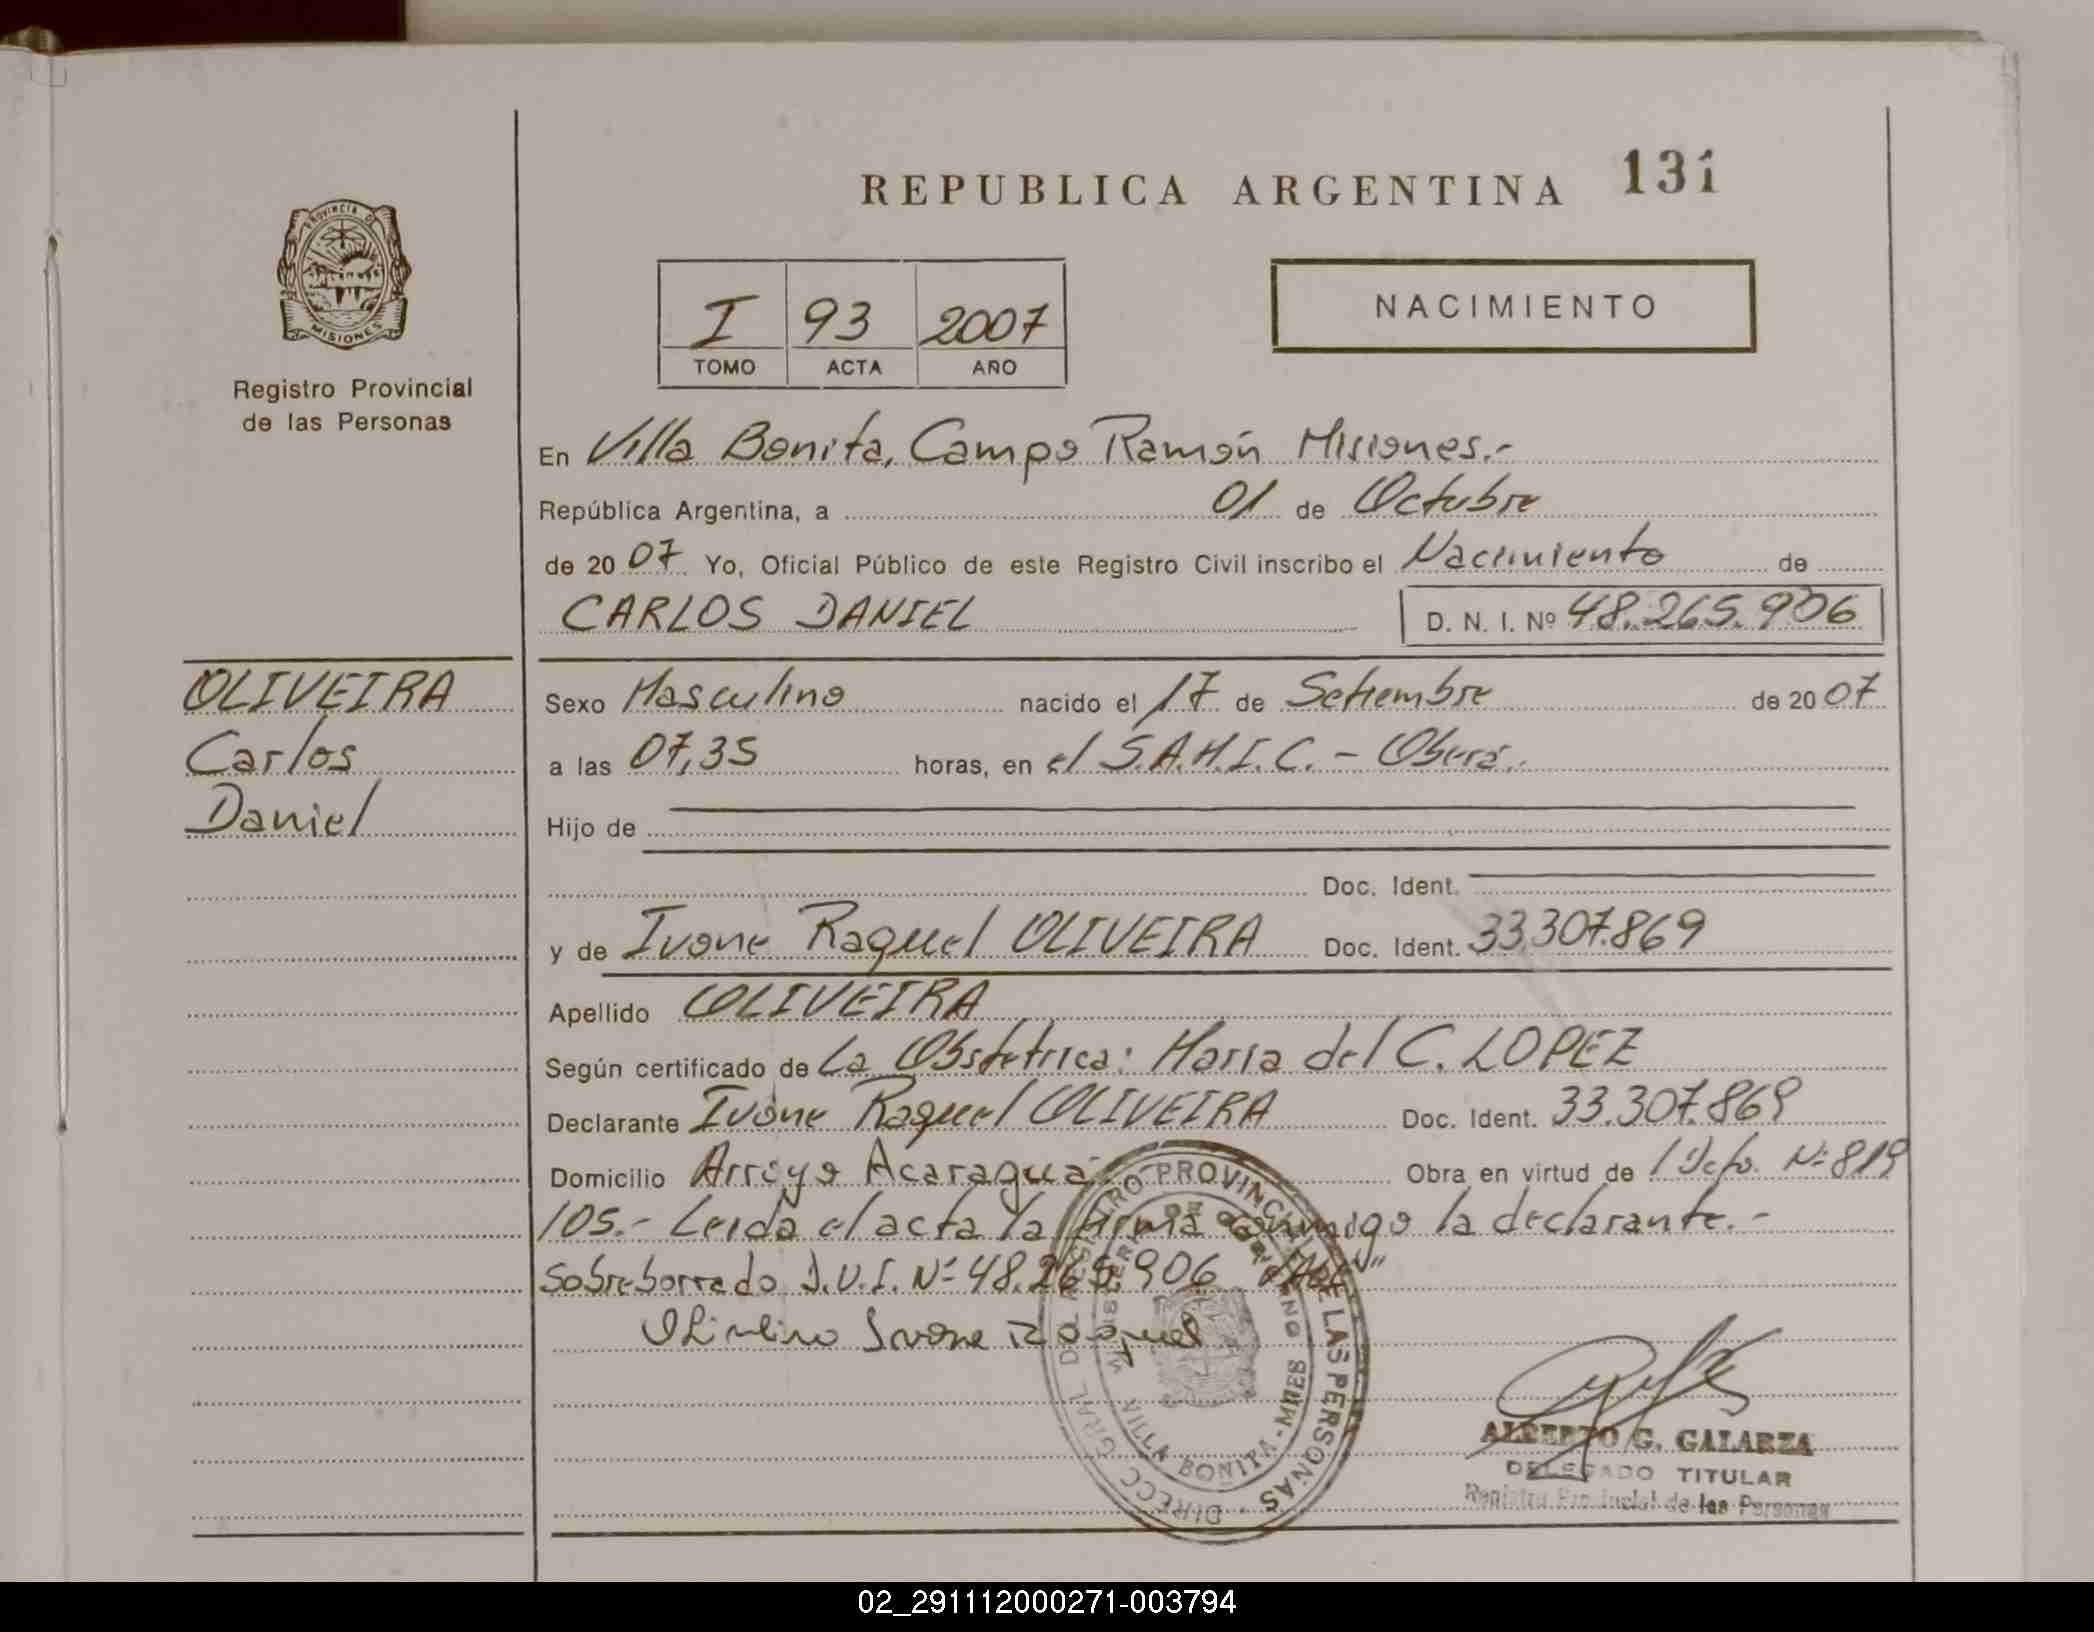 REPUBLICA ARGENTINA 131
PROVINCIA DE
MISIONES
Registro Provincial
de las Personas
I 93 2007
TOMO ACTA AÑO
NACIMIENTO
En Villa Bonita, Campo Ramón Misiones.-
República Argentina, a 01 de Octubre
de 2007 Yo, Oficial Público de este Registro Civil inscribo el Nacimiento de
CARLOS DANIEL D. N. I. Nº 48.265.906
OLIVEIRA
Carlos
Daniel
Sexo Masculino nacido el 17 de Setiembre de 2007
a las 07,35 horas, en el S.A.M.I.C. - Oberá.
Hijo de
Doc. Ident.
y de Ivone Raquel OLIVEIRA Doc. Ident. 33.307.869
Apellido OLIVEIRA
Según certificado de La Obstetrica: Maria del C. LOPEZ
Declarante Ivone Raquel OLIVEIRA Doc. Ident. 33.307.869
Domicilio Arroyo Acaragua Obra en virtud de 1 Dcto. Nº 819
105.- Leida el acta la firma conmigo la declarante.-
Sobreborrado D.N.I. Nº 48.265.906 "VALE"
Ivone Raquel
DIRECC GRAL DEL REGISTRO PROVINCIAL DE LAS PERSONAS
MINISTERIO DE GOBIERNO
VILLA BONITA - MNES
ALBERTO G. GALARZA
DELEGADO TITULAR
Registro Provincial de las Personas
02_291112000271-003794